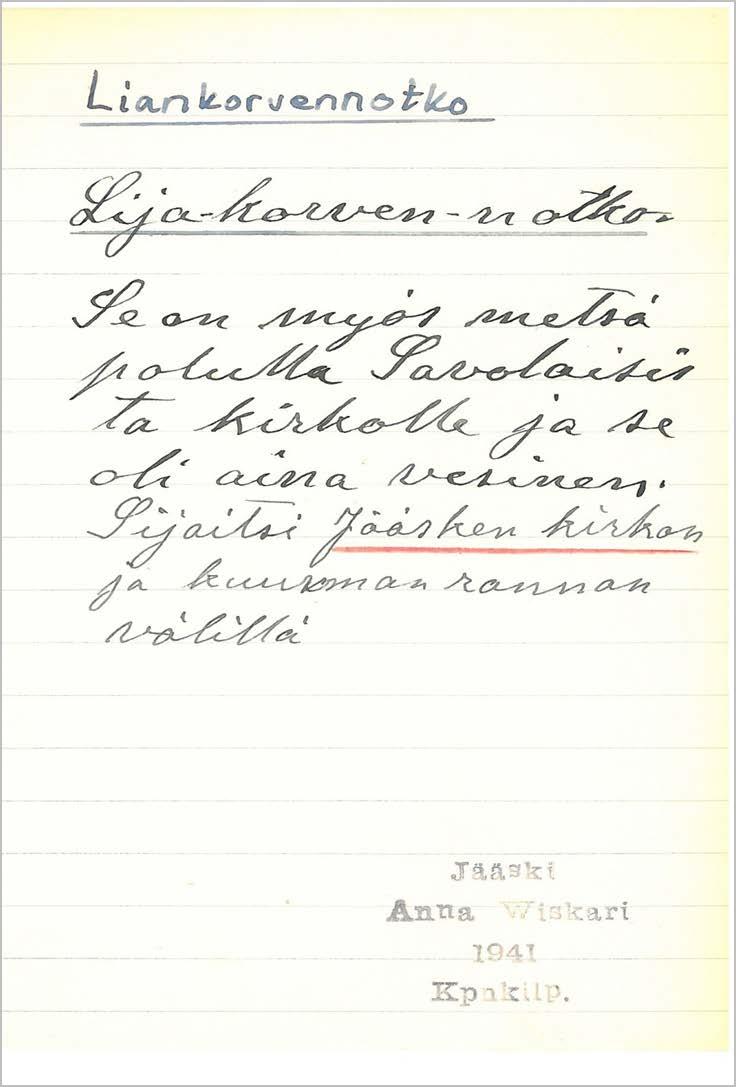 Liankorvennotko
Lija-korven-notko.
Se on myös metsä
polulla Savolaisis
ta kirkolle ja se
oli aina vesinen.
Sijaitsi Jääsken kirkon
ja kuurman rannan
välillä
Jääski
Anna Wiskari
1941
Kpnkilp.